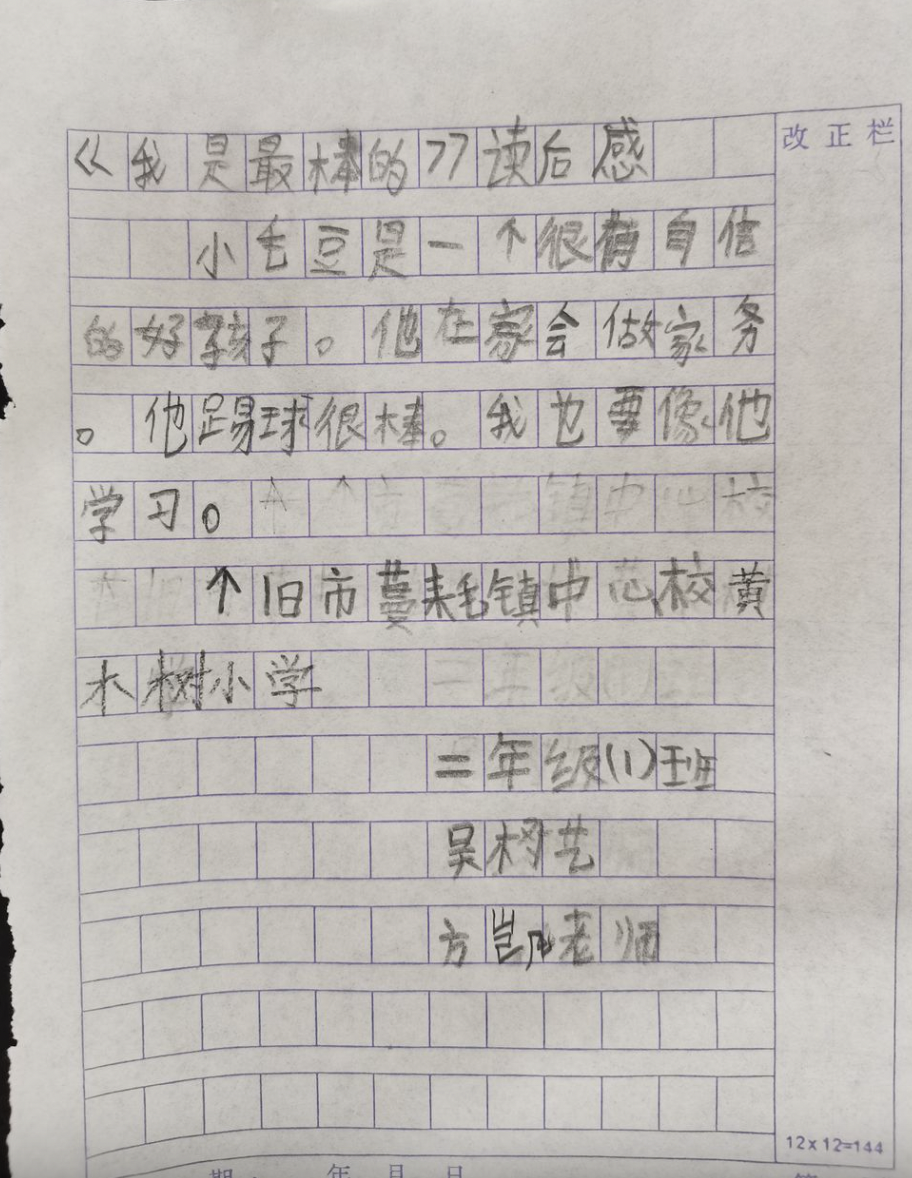 《我是最棒的》读后感
改正栏
小毛豆是一个很有自信
的好孩子。他在家会做家务
。他踢球很棒。我也要像他
学习。
个旧市蔓耗镇中心校黄
木树小学
二年级(1)班
吴树艺
方凯老师
12×12=144
年 月 日